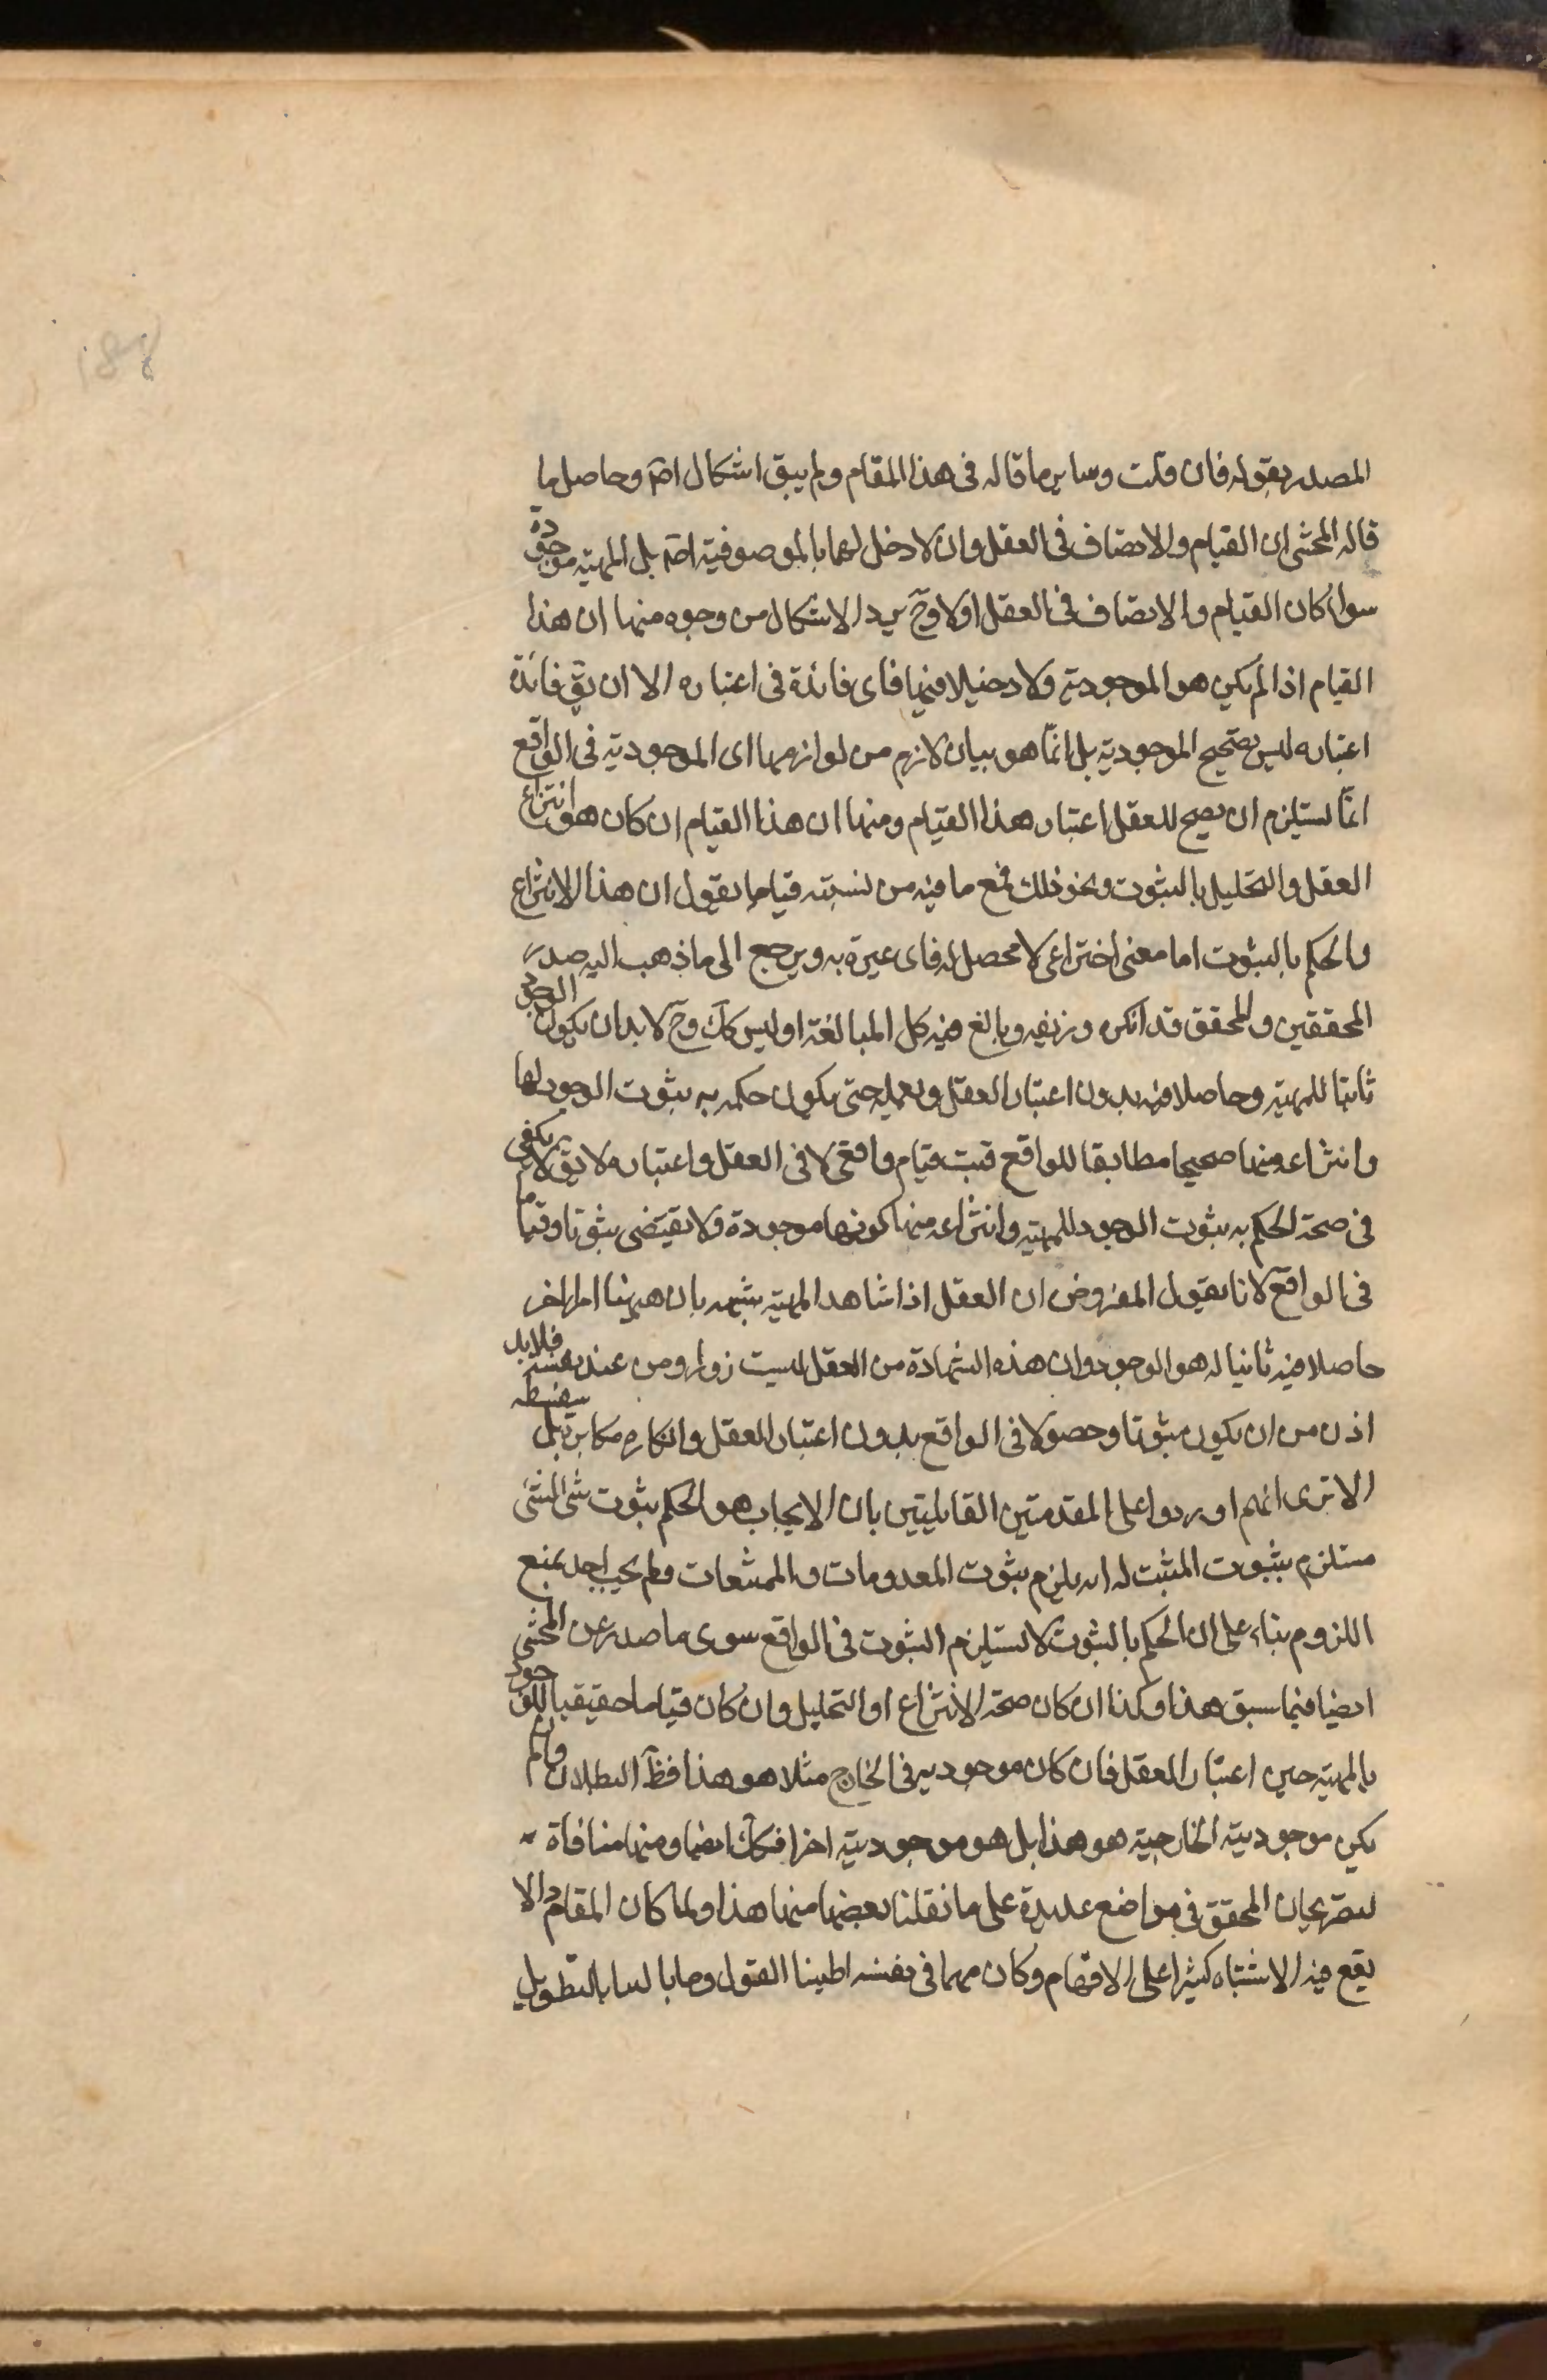 المصدر بقوله فان قلت وساير ما قاله فى هذا المقام ولم يبق اشكال اصّ وحاصل ما
قاله المحشى ان القيام والاتصاف فى العقل وان لا دخل لهما بالموصوفية اصّ بل المهية موجودة
سواء كان القيام والاتصاف فى العقل اولا وحّ يرد الاشكال من وجوه منها ان هذا
القيام اذا لم يكن هو الموجودية ولا دخيلا فيها فاى فائدة فى اعتباره الا ان يقّ فائدة
اعتباره ليس تصحيح الموجودية بل انمّا هو بيان لازم من لوازمها اى الموجودية فى الواقع
انما يستلزم ان يصح للعقل اعتبار هذا القيام ومنها ان هذا القيام ان كان هو انتزاع
العقل والتحليل بالثبوت ونحو ذلك فمع ما فيه من تسميته قياما نقول ان هذا الانتزاع
والحكم بالثبوت اما معنى اختراعى لا محصل له فاى عبرة به ويرجع الى ما ذهب اليه صدر
المحققين والمحقق قد انكره وزيفه وبالغ فيه كل المبالغة اوليس كآك وحّ لا بد ان يكون الوجود
ثابتا للمهية وحاصلا فيه بدون اعتبار العقل وتعمله حتى يكون حكمه به بثبوت الوجود لها
وانتزاعه منها صحيحا مطابقا للواقع فثبت قيام واقعى لا فى العقل واعتباره لا يقّ لا ثم يكفى
فى صحة الحكم به بثبوت الوجود للمهية وانتزاعه منها كونها موجودة ولا يقتضى ثبوتا وقياما
فى الواقع لانا نقول المفروض ان العقل اذا شاهد المهية يشهد بان هيهنا امرا اخر
حاصلا فيه ثانيا له هو الوجود وان هذه الشهادة من العقل ليست زورا ومن عند نفسه فلا بد
اذن من ان يكون ثبوتا وحصولا فى الواقع بدون اعتبار العقل وانكاره مكابرة بل سفسطه
الا ترى انهم اوردوا على المقدمتين القايليتين بان الايجاب هو الحكم بثبوت شى لشئ
مستلزم بثبوت المثبت له انه يلزم ثبوت المعدومات والممتنعات ولم يجب احد بمنع
اللزوم بناء على ان الحكم بالثبوت لا يستلزم الثبوت فى الواقع سوى ما صدر عن المحشى
ايضا فيما سبق هذا وكذا ان كان صحة الانتزاع او التحليل وان كان قياما حقيقيا للوجود
بالمهية حين اعتبار العقل فان كان موجوديته فى الخارج مثلا هو هذا فظّ البطلان وان لم
يكن موجوديته الخارجية هو هذا بل هو موجودية اخرا فكآك ايضا ومنها منافاة
لتصريحات المحقق فى مواضع عديدة على ما نقلنا بعضها منها هذا ولما كان المقام
يقع فيه الاشتباه كثيرا على الافهام وكان مهما فى نفسه اطنبنا القول وما بالينا بالتطويل